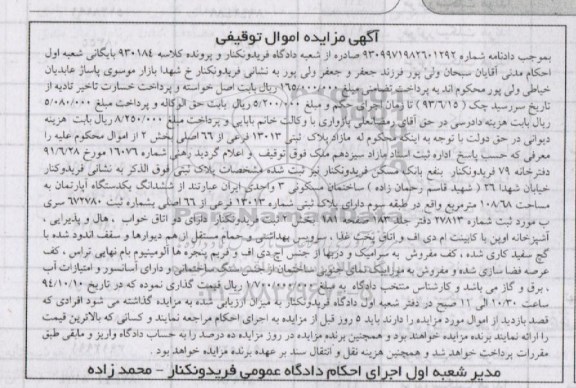 آگهی مزایده اموال توقیفی
بموجب دادنامه شماره ۹۳۰۹۹۷۱۹۸۲۶۰۱۲۹۲ صادره از شعبه دادگاه فریدونکنار و پرونده کلاسه ۹۳۰۱۸۴ بایگانی شعبه اول
احکام مدنی آقایان سبحان ولی پور فرزند جعفر و جعفر ولی پور به نشانی فریدونکنار خ شهدا بازار موسوی پاساژ عابدیان
خیاطی ولی پور محکوم اند به پرداخت تضامنی مبلغ ۱۶۵/۰۰۰/۰۰۰ ریال بابت اصل خواسته و پرداخت خسارت تاخیر تادیه از
تاریخ سررسید چک (۹۳/۶/۱۵) تا زمان اجرای حکم و مبلغ ۵/۲۰۰/۰۰۰ ریال بابت حق الوکاله و پرداخت مبلغ ۵/۰۸۰/۰۰۰
ریال بابت هزینه دادرسی در حق آقای رمضانعلی بازواری با وکالت خانم بابایی و پرداخت مبلغ ۸/۲۵۰/۰۰۰ ریال بابت هزینه
دیوانی در حق دولت با توجه به اینکه محکوم له مازاد پلاک ثبتی ۱۳۰۱۳ فرعی از ۶۶ اصلی بخش ۲ از اموال محکوم علیه را
معرفی که حسب پاسخ اداره ثبت اسناد مازاد سیزدهم ملک فوق توقیف و اعلام گردید رهنی شماره ۱۶۰۷۶ مورخ ۹۱/۶/۲۸
دفترخانه ۷۹ فریدونکنار بنفع بانک مسکن فریدونکنار نیز ثبت شده مشخصات پلاک ثبتی فوق الذکر به نشانی فریدوکنار
خیابان شهدا ۲۶ (شهید قاسم رحمان زاده) ساختمان مسکونی ۳ واحدی ایران عبارتند از ششدانگ یکدستگاه آپارتمان به
مساحت ۱۰۸/۶۸ مترمربع واقع در طبقه سوم دارای پلاک ثبتی شماره ۱۳۰۱۳ فرعی از ۶۶ اصلی بشماره ثبت ۶۷۲۷۸۰ سری
ب مورد ثبت شماره ۲۷۸۱۳ دفتر جلد ۱۸۳ صفحه ۱۸۱ بخش ۲ ثبت فریدونکنار دارای دو اتاق خواب ، هال و پذیرایی ،
آشپزخانه اوپن با کابینت ام دی اف و اتاق پخت غذا ، سرویس بهداشتی و حمام مستقل از هم دیوارها و سقف اندود شده با
گچ سفید کاری شده ، کف مفروش به سرامیک و دربها از جنس اچ دی اف و فریم پنجره ها آلومینیوم بام نهایی تراس ، کف
عرصه فضا سازی شده و مفروش به موزاییک نمای جنوبی ساختمان از جنس سنگ ساختمانی و دارای آسانسور و امتیازات آب
، برق و گاز می باشد و کارشناس منتخب دادگاه به مبلغ ۱/۷۰۰/۰۰۰/۰۰۰ ریال قیمت گذاری نموده که در تاریخ ۹۴/۱۰/۱۰
ساعت ۱۰/۳۰ الی ۱۲ صبح در دفتر شعبه اول دادگاه فریدونکنار به میزان ارزیابی شده به مزایده گذاشته می شود افرادی که
قصد بازدید از اموال مورد مزایده را دارند باید ۵ روز قبل از مزایده به اجرای احکام مراجعه نمایند و کسانی که بالاترین قیمت
را ارائه نمایند برنده مزایده خواهند بود و همچنین برنده مزایده در روز مزایده ده درصد را به حساب دادگاه واریز و مابقی طبق
مقررات پرداخت خواهد شد و همچنین هزینه نقل و انتقال سند بر عهده برنده مزایده خواهد بود .
مدیر شعبه اول اجرای احکام دادگاه عمومی فریدونکنار - محمد زاده